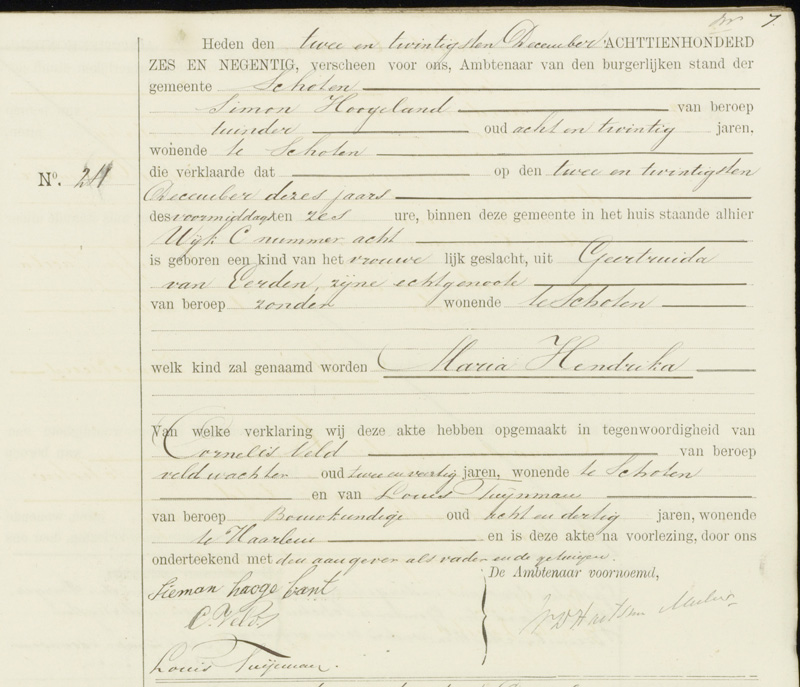 7.
Heden den twee en twintigsten December ACHTTIENHONDERD
ZES EN NEGENTIG, verscheen voor ons, Ambtenaar van den burgerlijken stand der
gemeente Schoten
Simon Hoogeland van beroep
tuinder oud acht en twintig jaren,
wonende te Schoten
No. 211
die verklaarde dat op den twee en twintigsten
December dezes jaars
des voormiddags ten zes ure, binnen deze gemeente in het huis staande alhier
Wyk C nummer acht
is geboren een kind van het vrouwe lijk geslacht, uit Geertruida
van Eerden, zijne echtgenoote
van beroep zonder wonende te Schoten
welk kind zal genaamd worden Maria Hendrika
Van welke verklaring wij deze akte hebben opgemaakt in tegenwoordigheid van
Cornelis Veld van beroep
veldwachter oud twee en veertig jaren, wonende te Schoten
en van Louis Tuijnman
van beroep Bouwkundige oud acht en dertig jaren, wonende
te Haarlem en is deze akte na voorlezing, door ons
onderteekend met den aangever als vader en de getuigen.
De Ambtenaar voornoemd,
Sieman hooge lant
C. Veld
Louis Tuijnman.